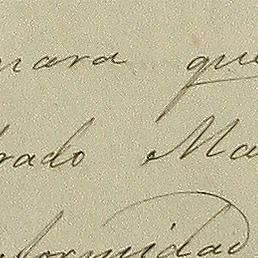 mara que
rado Ma
formidad